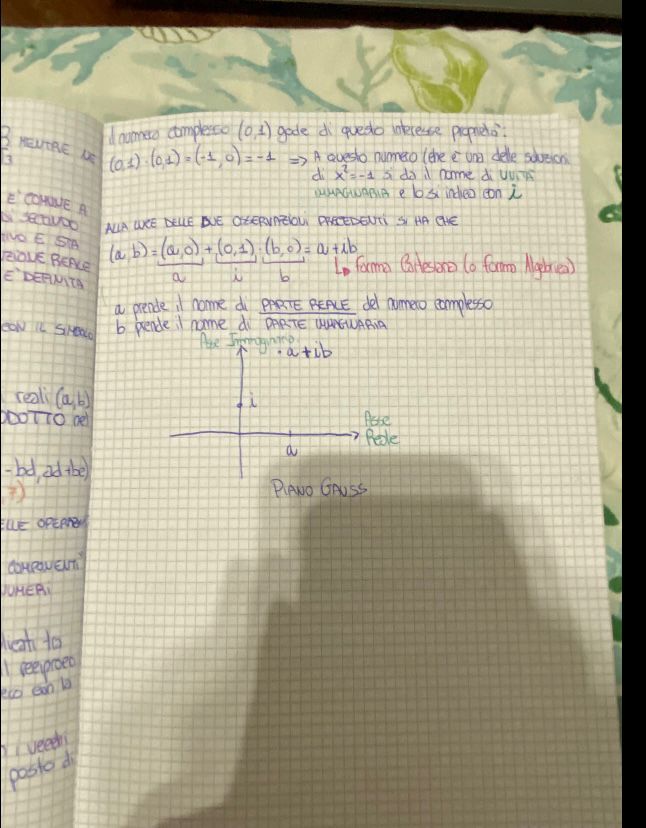 MENTRE NE
3
E' COMUNE A
DI SECONDO
TIVO E STA
ZIONE REALE
E' DEFINITA
CON IL SIMBOLO
reali (a,b)
ODOTTO nel
-bd, ad+bc)
7)
ELLE OPERAZI
COMPONENTI
NUMERI
licati to
il reciproco
eco con la
i vecchi
posto di
il numero complesso (0,1) gode di questo interesse proprietà:
(0,1)·(0,1)=(-1,0)=-1 => A questo numero (che è una delle soluzioni
di x²=-1 si da il nome di UNITÀ
IMMAGINARIA e lo si indica con i
ALLA LUCE DELLE DUE OSSERVAZIONI PRECEDENTI SI HA CHE
(a,b)=(a,0)+(0,1)·(b,0)=a+ib
a i b
↳ forma Cartesiana (o forma Algebrica)
a prende il nome di PARTE REALE del numero complesso
b prende il nome di PARTE IMMAGINARIA
Asse Immaginario
·a+ib
i
Asse
Reale
a
PIANO GAUSS